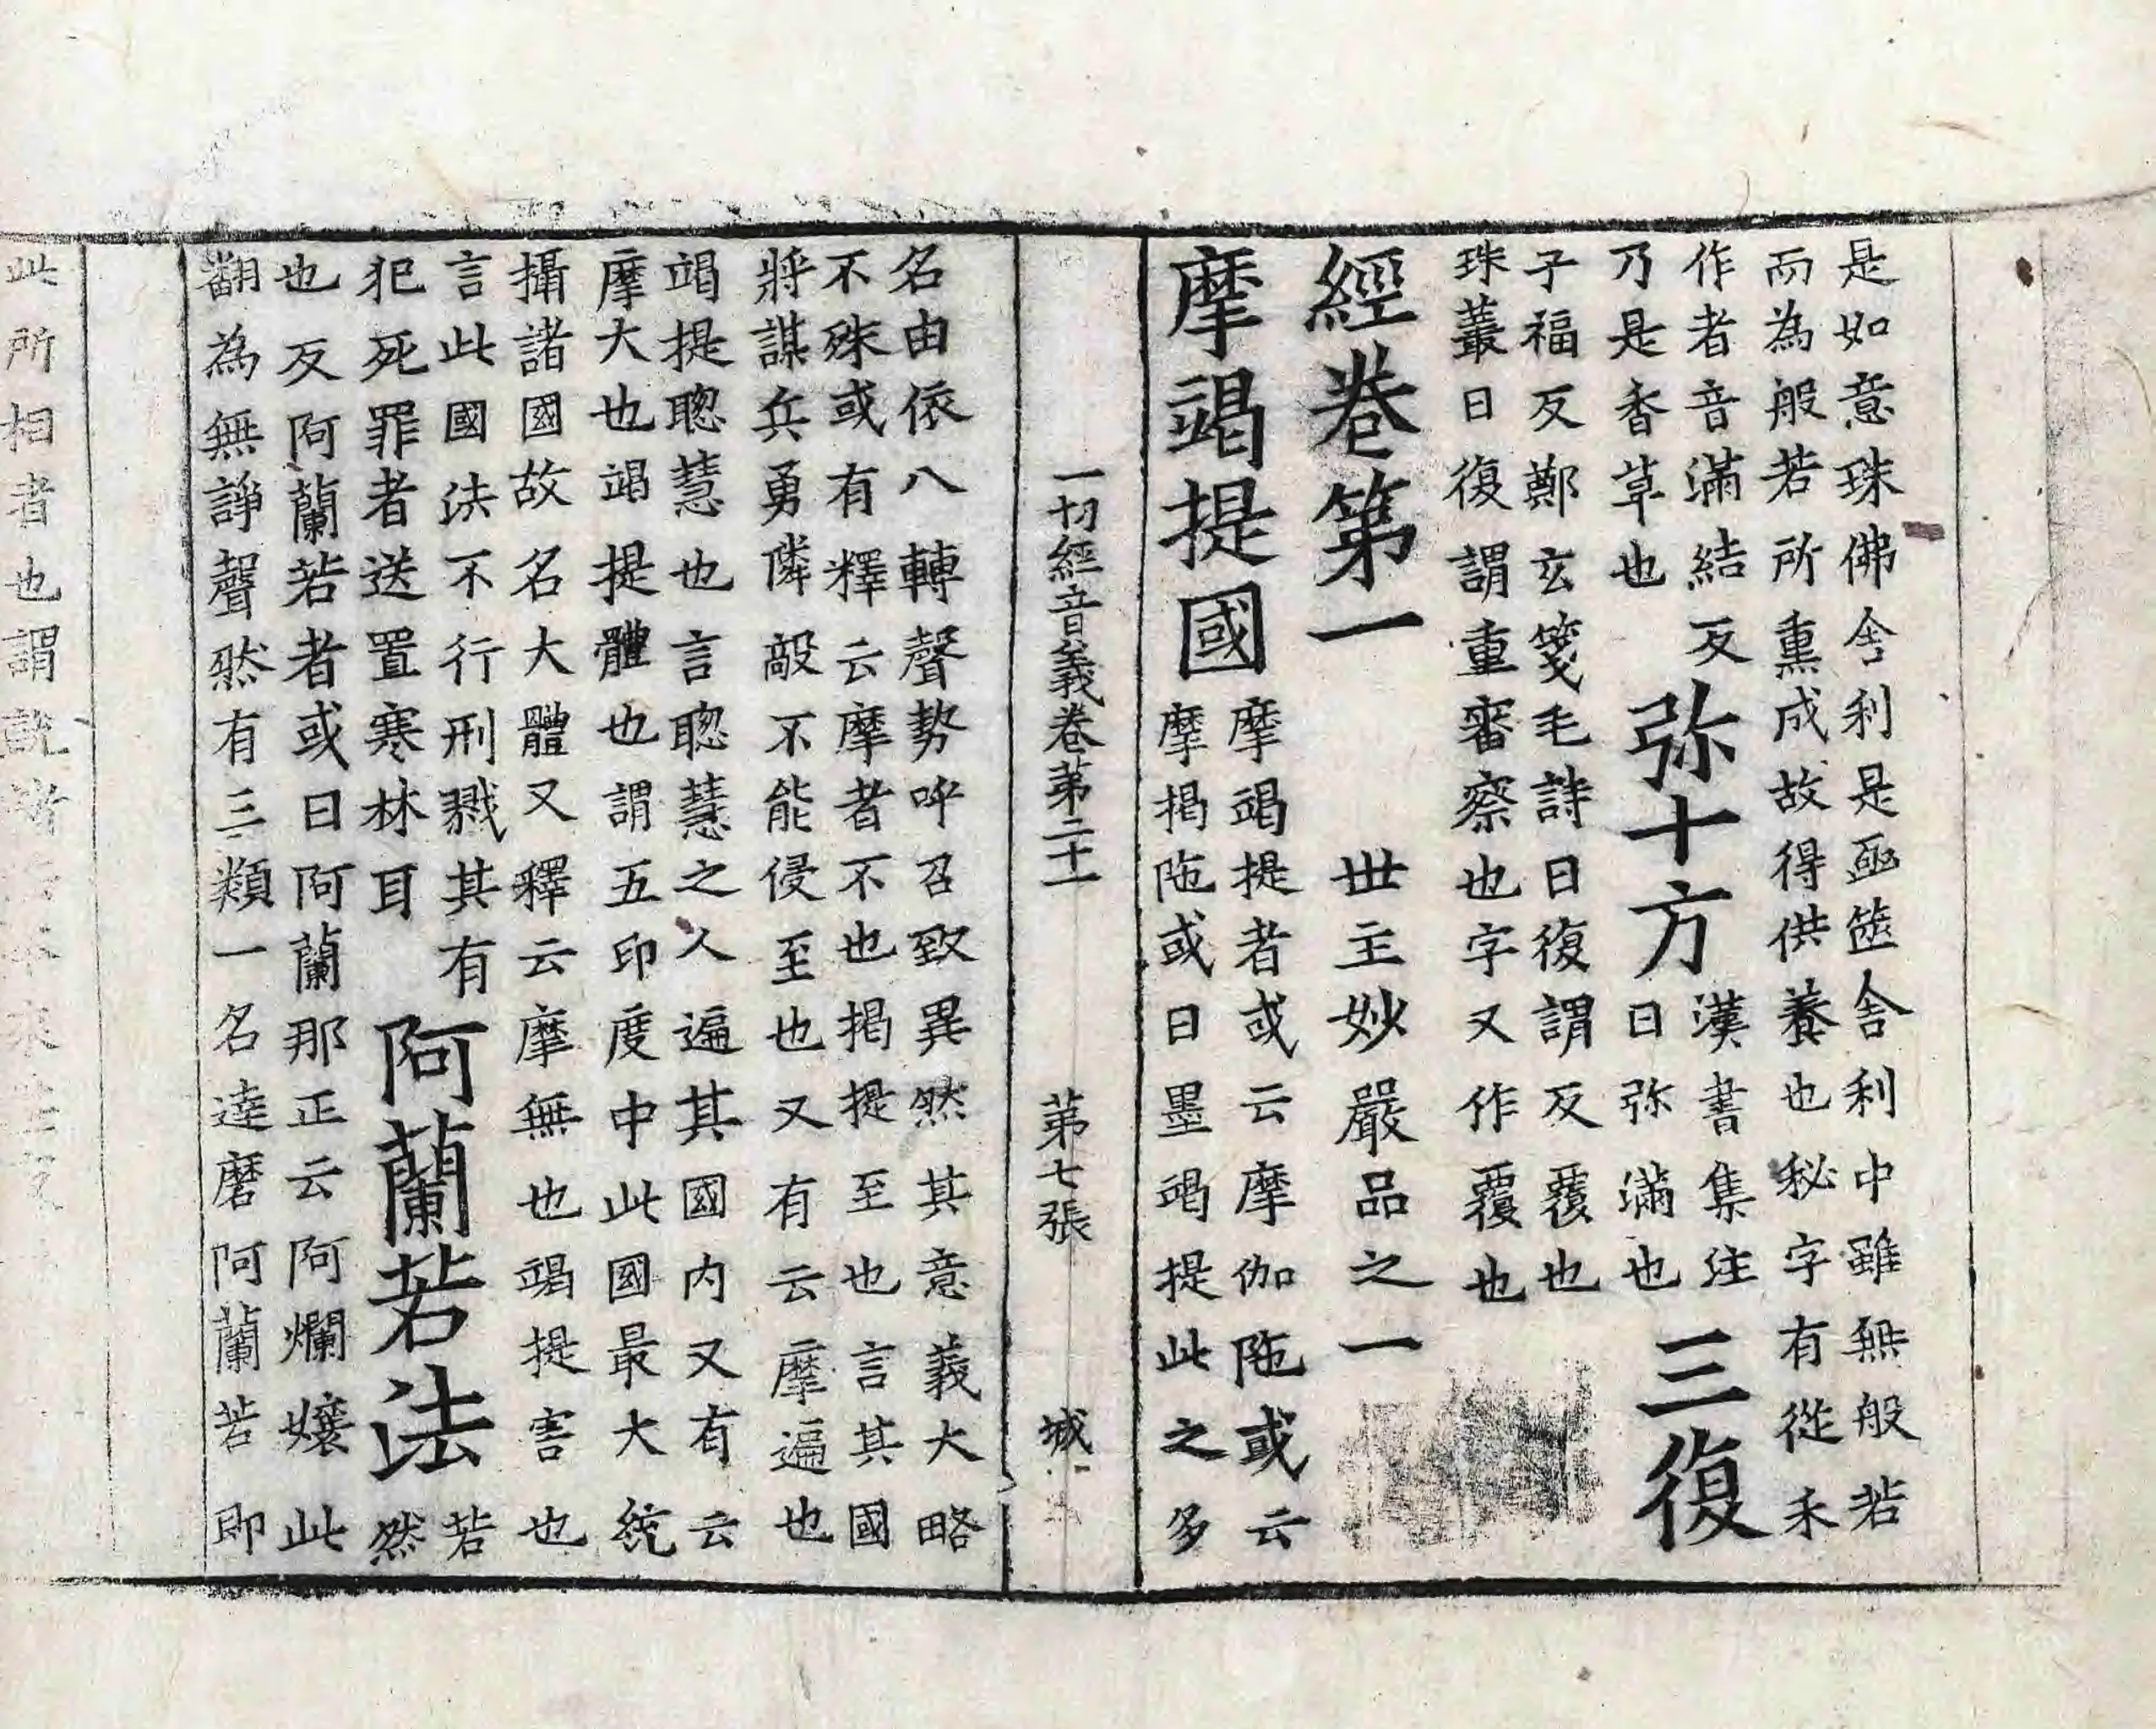 是如意珠佛舍利是函篋舍利中雖無般若
而為般若所熏成故得供養也秘字有從禾
作者音滿結反
乃是香草也
弥十方
漢書集注
曰弥滿也
三復
子福反鄭玄箋毛詩曰復謂反覆也
珠叢曰復謂重審察也字又作覆也
經卷第一 世主妙嚴品之一
摩竭提國
摩竭提者或云摩伽陁或云
摩揭陁或曰墨竭提此之多
一切經音義卷第二十一 第七張 城
名由依八轉聲勢呼召致異然其意義大略
不殊或有釋云摩者不也揭提至也言其國
將謀兵勇隣敵不能侵至也又有云摩遍也
竭提聰慧也言聰慧之人遍其國内又有云
摩大也竭提體也謂五印度中此國最大統
攝諸國故名大體又釋云摩無也竭提害也
言此國法不行刑戮其有
犯死罪者送置寒林耳
阿蘭若法
若
然
也反阿蘭若者或曰阿蘭那正云阿爛孃此
翻為無諍聲然有三類一名達磨阿蘭若即
此所相者也謂說諸